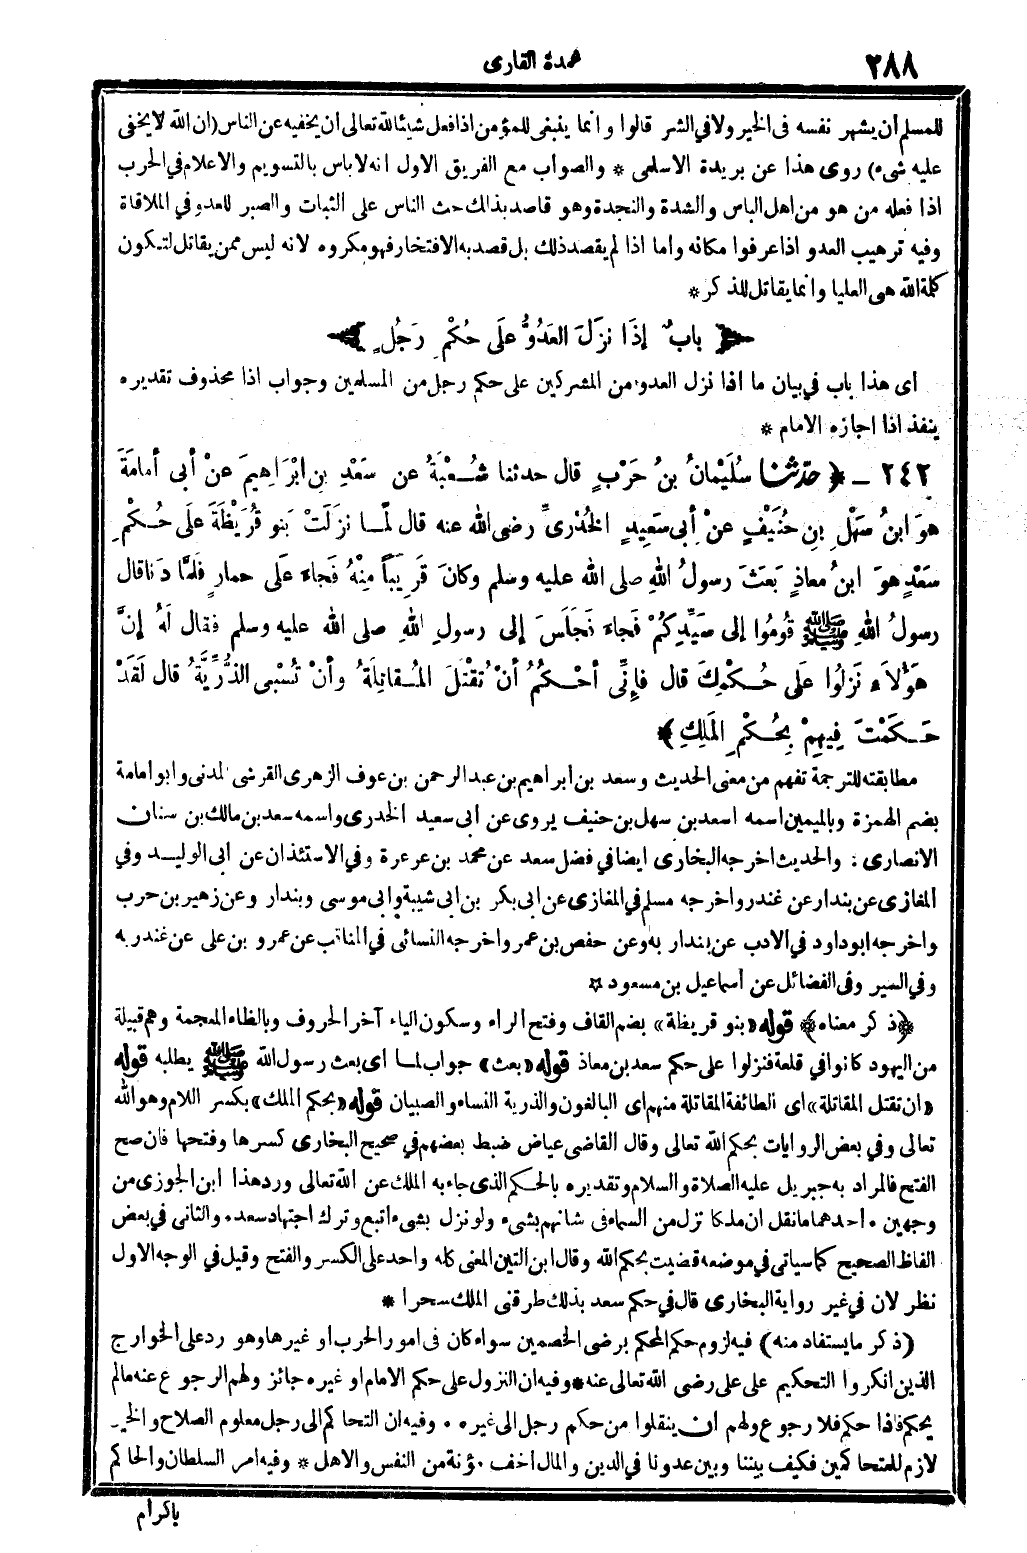 ٢٨٨
عمدة القارى
للمسلم أن يشهر نفسه فى الخير ولا فى الشر قالوا وانما ينبغى للمؤمن اذا فعل شيئا لله تعالى أن يخفيه عن الناس (ان الله لا يخفى
عليه شىء) روى هذا عن بريدة الاسلمى * والصواب مع الفريق الاول انه لا باس بالتسويم والاعلام فى الحرب
اذا فعله من هو من اهل الباس والشدة والنجدة وهو قاصد بذالك حث الناس على الثبات والصبر للعدو فى الملاقاة
وفيه ترهيب العدو اذا عرفوا مكانه واما اذا لم يقصد ذلك بل قصد به الافتخار فهو مكروه لانه ليس ممن يقاتل لتكون
كلمة الله هى العليا وانما يقاتل للذكر *
﴿ بابٌ إذَا نزَلَ العَدُوُّ علَى حُكْمِ رَجُلٍ ﴾
اى هذا باب فى بيان ما اذا نزل العدو من المشركين على حكم رجل من المسلمين وجواب اذا محذوف تقديره
ينفذ اذا اجازه الامام *
٢٤٢ ــ ﴿ حدّثنا سُلَيْمانُ بنُ حَرْبٍ قال حدثنا شُعْبَةُ عن سَعْدِ بنِ ابْرَاهِيمَ عنْ أبى أمامَةَ
هوَ ابنُ سَهْلِ بنِ حُنَيْفٍ عنْ أبى سَعِيدٍ الخُدْرىِّ رضى الله عنه قال لَمَّا نزَلَتْ بَنو قُرَيْظَةَ علَى حُكْمِ
سَعْدٍ هوَ ابنُ معاذٍ بَعَثَ رسولُ اللهِ صلى الله عليه وسلم وكانَ قَرِيباً مِنْهُ فَجاءَ علَى حمارٍ فلَمَّا دَنا قال
رسولُ اللهِ ﷺ قُومُوا إلى سَيِّدِكُمْ فَجاءَ فَجَلَسَ إلى رسولِ اللهِ صلى الله عليه وسلم فقال لَهُ إنَّ
هَؤُلاَءِ نَزَلُوا علَى حُكْمِكَ قال فإنِّى أحْكُمُ أنْ تُقْتَلَ المُقاتِلَةُ وأنْ تُسْبى الذُّرِّيَّةُ قال لَقَدْ
حَكَمْتَ فِيهِمْ بِحُكْمِ المَلِكِ ﴾
مطابقته للترجمة تفهم من معنى الحديث وسعد بن ابراهيم بن عبد الرحمن بن عوف الزهرى القرشى المدنى وابو امامة
بضم الهمزة وبالميمين اسمه اسعد بن سهل بن حنيف يروى عن ابى سعيد الخدرى واسمه سعد بن مالك بن سنان
الانصارى : والحديث اخرجه البخارى ايضا فى فضل سعد عن محمد بن عرعرة وفى الاستئذان عن ابى الوليد وفى
المغازى عن بندار عن غندر واخرجه مسلم فى المغازى عن ابى بكر بن ابى شيبة وابى موسى وبندار وعن زهير بن حرب
واخرجه ابو داود فى الادب عن بندار به وعن حفص بن عمر واخرجه النسائى فى المناقب عن عمرو بن على عن غندر به
وفى السير وفى الفضائل عن أسماعيل بن مسعود *
﴿ذكر معناه﴾ قوله «بنو قريظة» بضم القاف وفتح الراء وسكون الياء آخر الحروف وبالظاء المعجمة وهم قبيلة
من اليهود كانوا فى قلعة فنزلوا على حكم سعد بن معاذ قوله «بعث» جواب لما اى بعث رسول الله ﷺ يطلبه قوله
«ان تقتل المقاتلة» اى الطائفة المقاتلة منهم اى البالغون والذرية النساء والصبيان قوله «بحكم الملك» بكسر اللام وهو الله
تعالى وفى بعض الروايات بحكم الله تعالى وقال القاضى عياض ضبط بعضهم فى صحيح البخارى كسرها وفتحها فان صح
الفتح فالمراد به جبريل عليه الصلاة والسلام وتقديره بالحكم الذى جاء به الملك عن الله تعالى ورد هذا ابن الجوزى من
وجهين . احدهما ما نقل ان ملكا نزل من السماء فى شانهم بشىء ولو نزل بشىء اتبع وترك اجتهاد سعد . والثانى فى بعض
الفاظ الصحيح كما سياتى فى موضعه قضيت بحكم الله وقال ابن التين المعنى كله واحد على الكسر والفتح وقيل فى الوجه الاول
نظر لان فى غير رواية البخارى قال فى حكم سعد بذلك طرقنى الملك سحرا *
(ذكر ما يستفاد منه) فيه لزوم حكم المحكم برضى الخصمين سواء كان فى امور الحرب او غيرها وهو رد على الخوارج
الذين انكروا التحكيم على على رضى الله تعالى عنه * وفيه ان النزول على حكم الامام او غيره جائز ولهم الرجوع عنه مالم
يحكم فاذا حكم فلا رجوع ولهم ان ينقلوا من حكم رجل الى غيره . وفيه ان التحاكم الى رجل معلوم الصلاح والخير
لازم للمتحاكمين فكيف بيننا وبين عدونا فى الدين والمال اخف مؤنة من النفس والاهل * وفيه امر السلطان والحاكم
باكرام